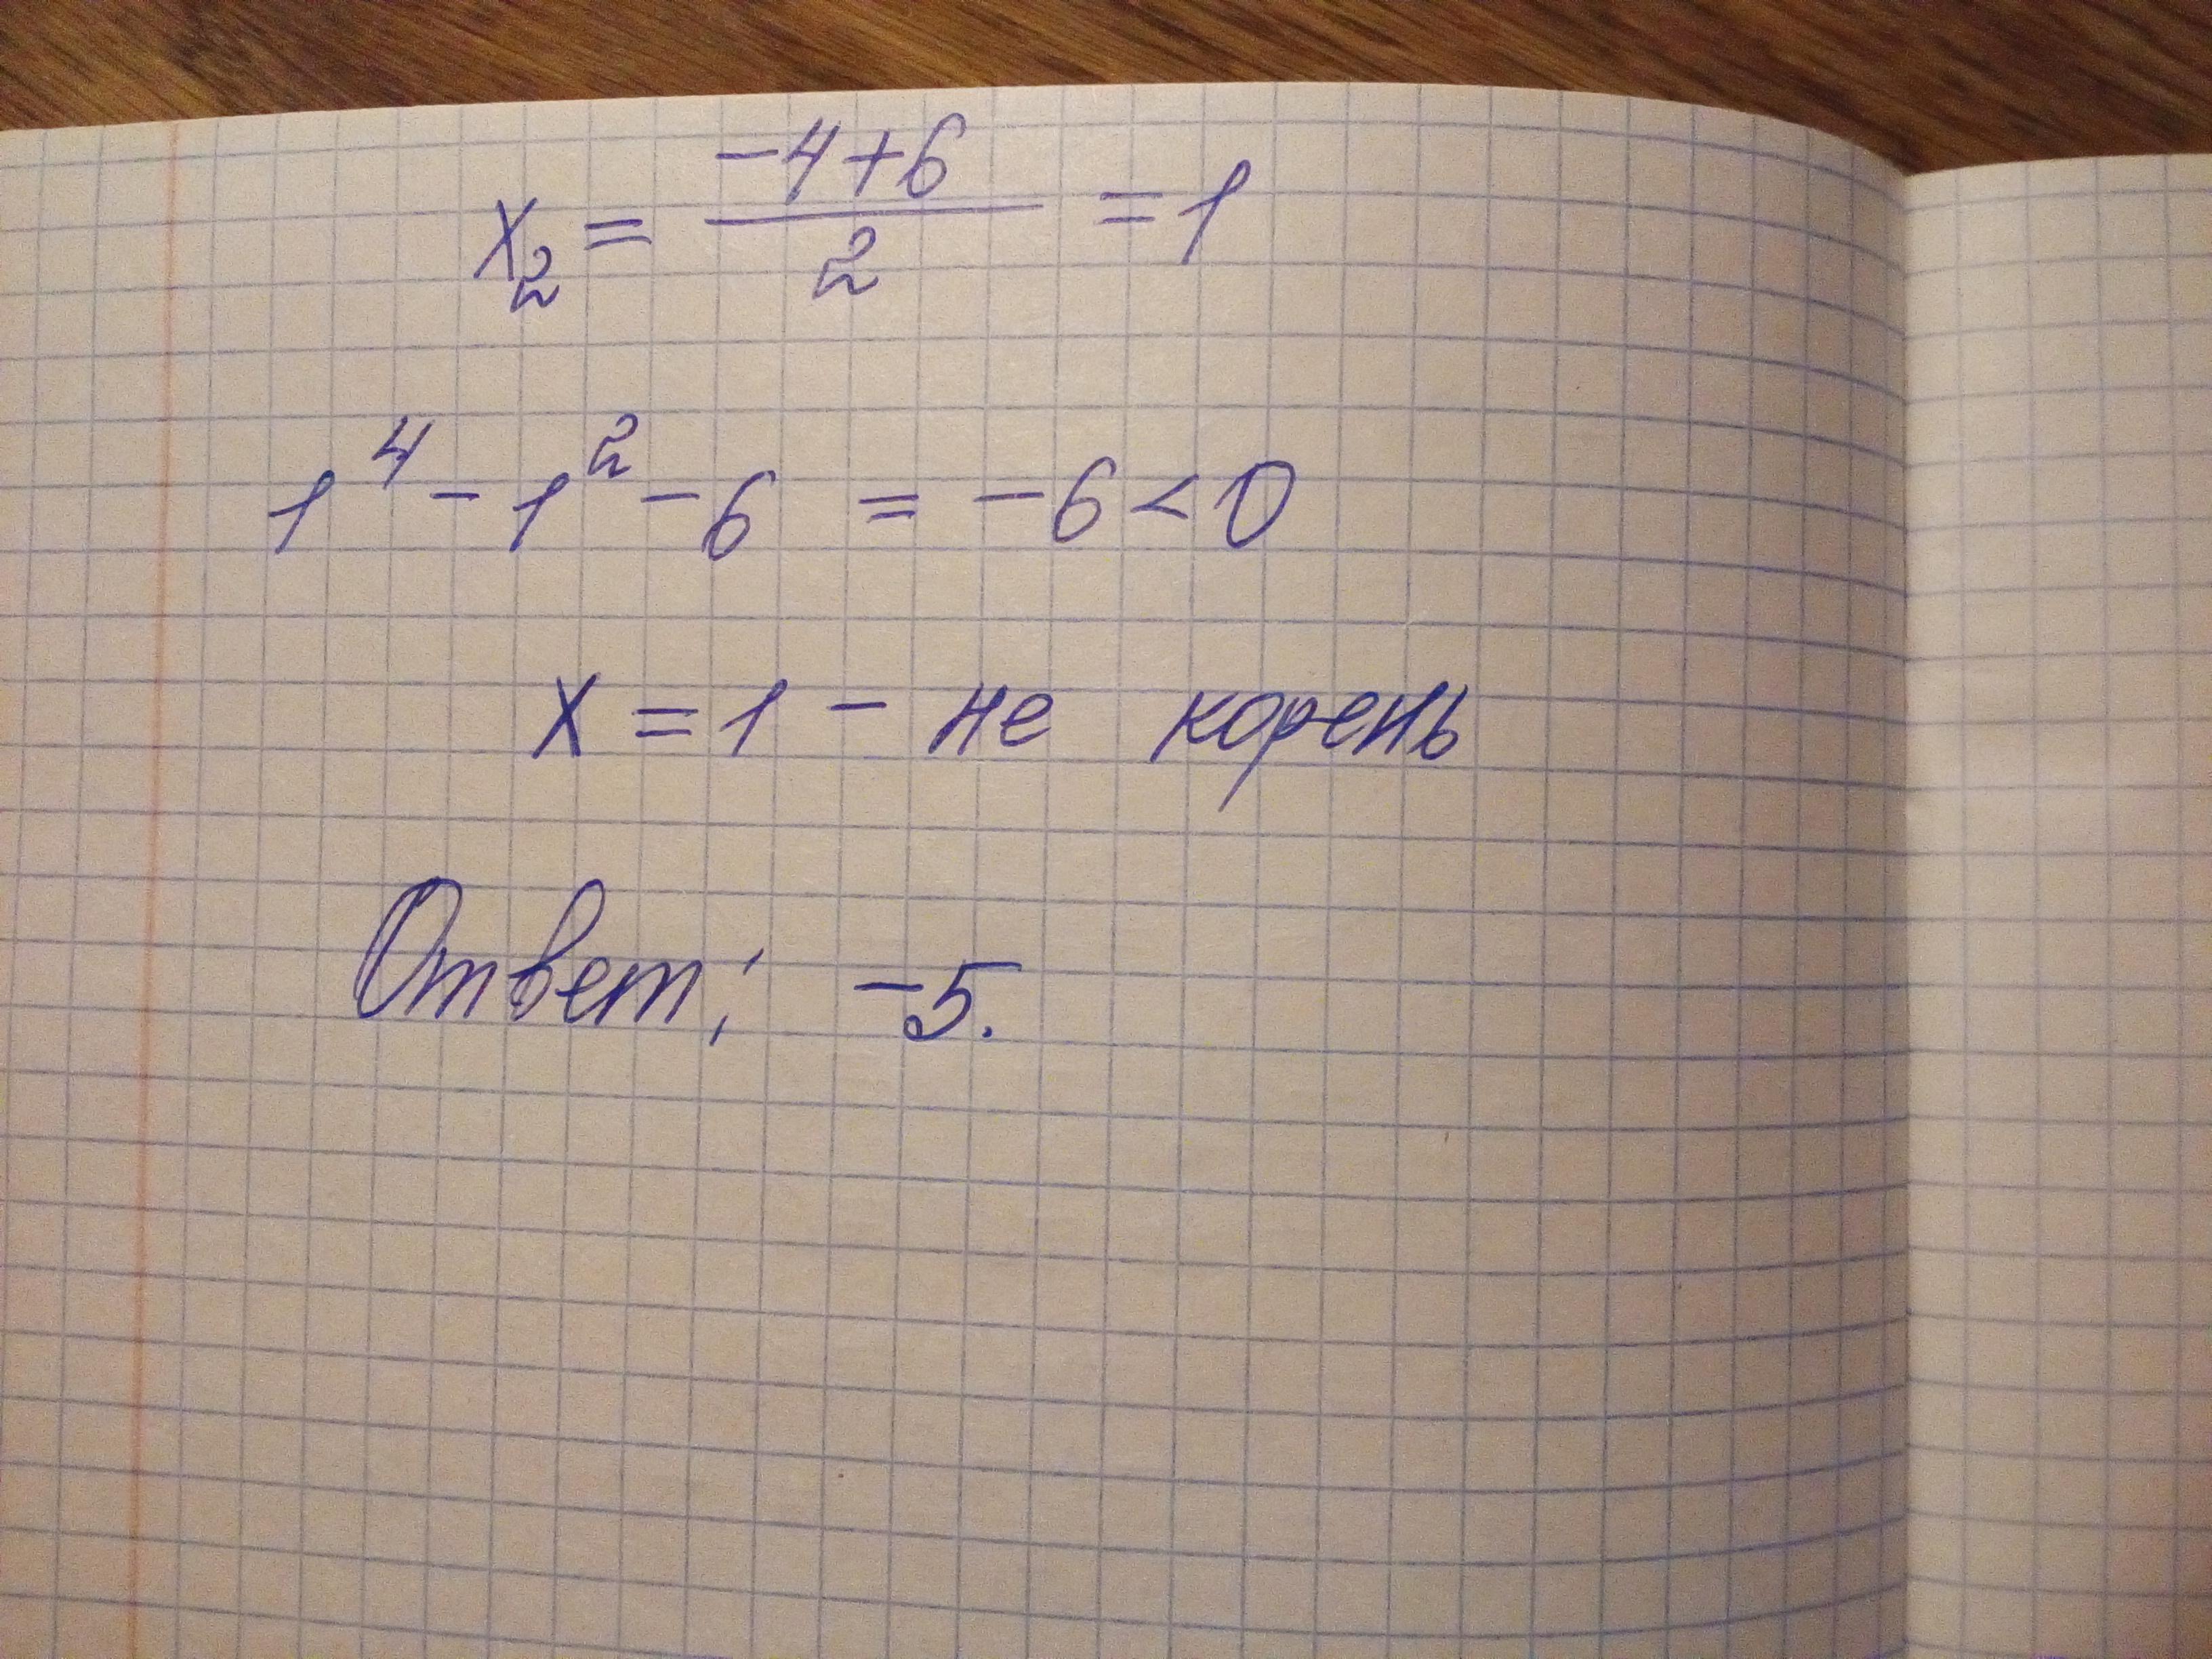 x₂ = (-4+6)/2 = 1
1⁴ - 1² - 6 = -6 < 0
x = 1 - не корень
Ответ: -5.